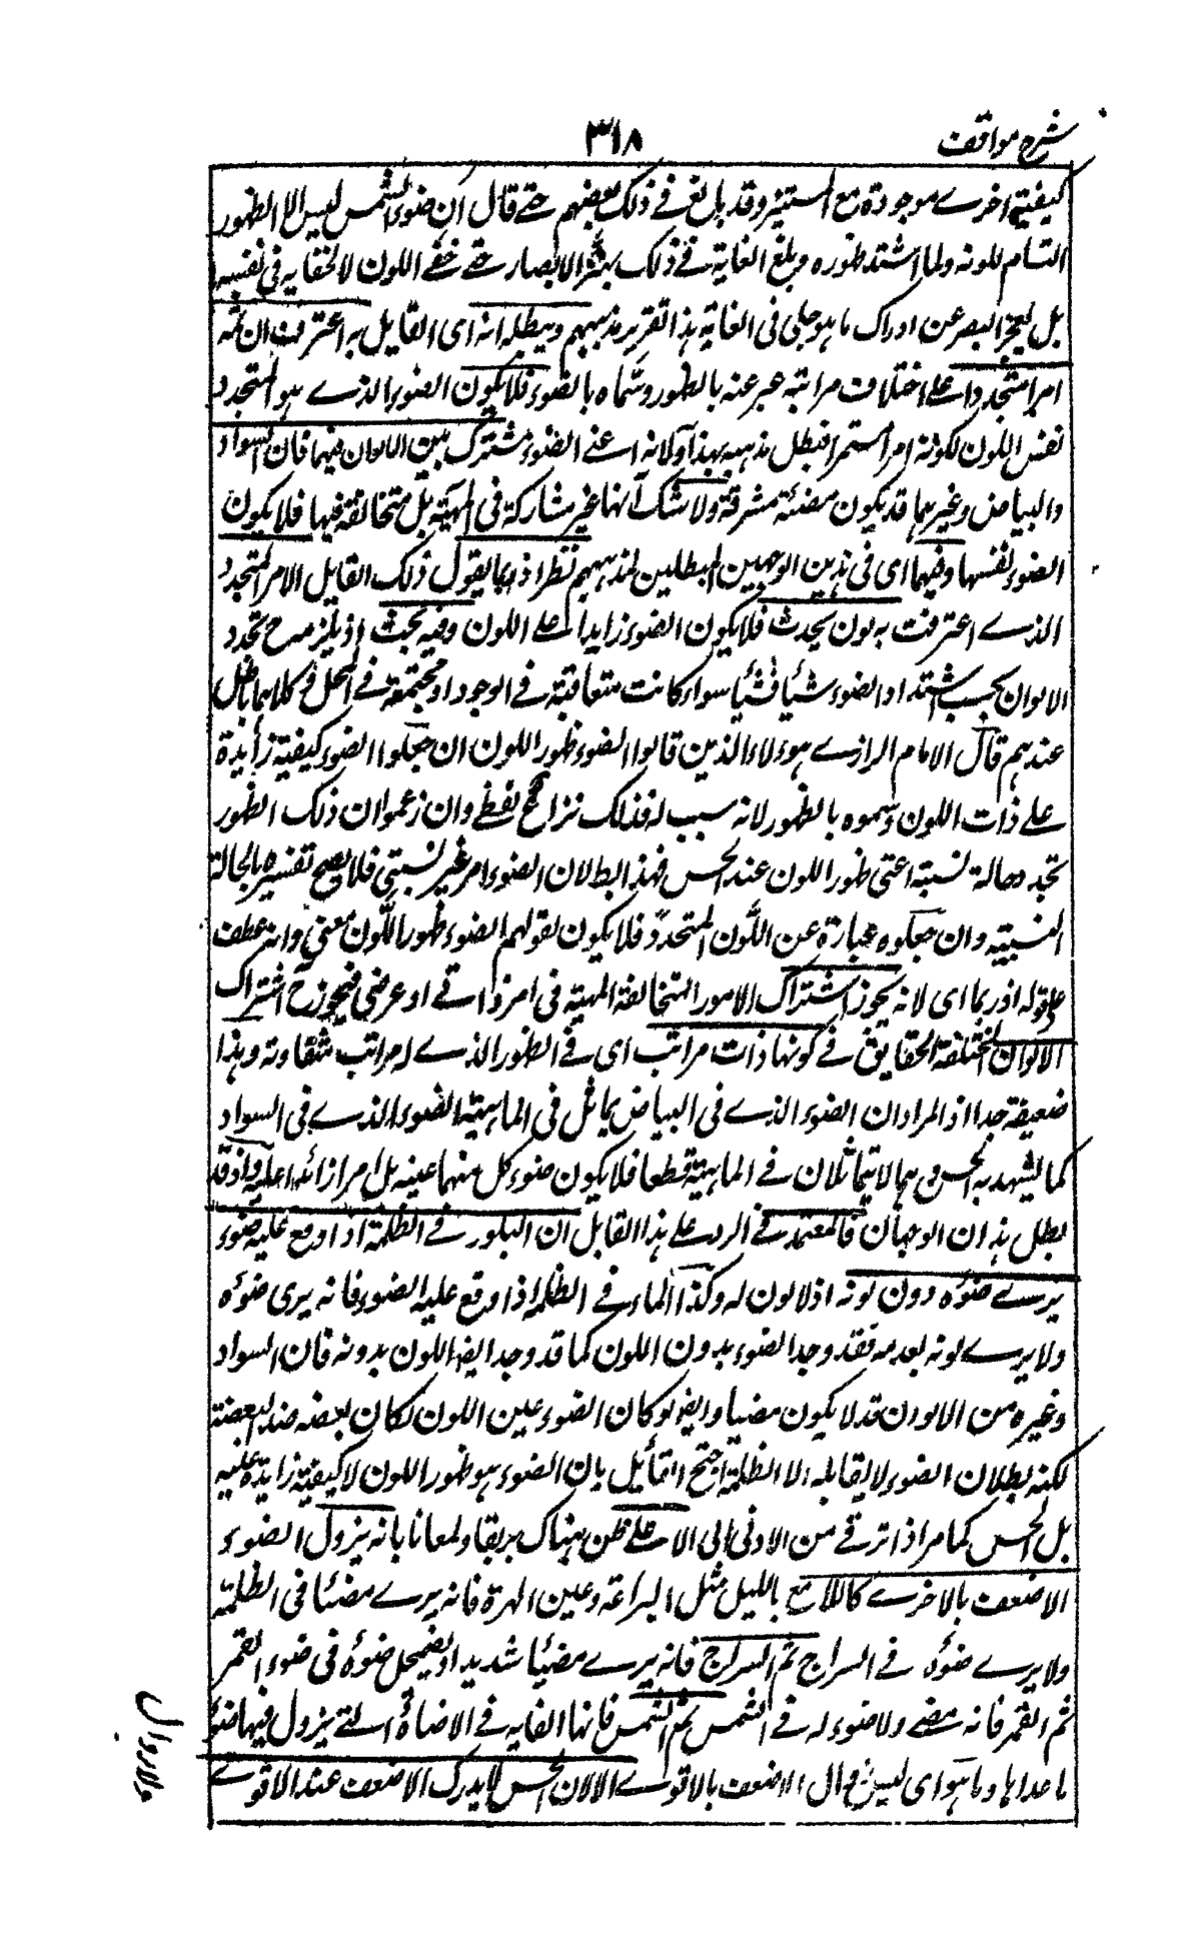 شرح مواقف
٣١٨
كيفية اخرے موجودة مع المستنير وقد بالغ فے ذلك بعضهم حتے قال ان ضوء الشمس ليس الا الظهور
التام للونه ولما اشتد ظهوره وبلغ الغاية فے ذلك بهر الابصار حتے خفے اللون لا لخفايه فى نفسه
بل لعجز البصر عن ادراك ما هو جلى فى الغاية هذا تقرير مذهبهم ويبطله انه اى القايل به اعترف ان ثمه
امرا متجددا علے اختلاف مراتبه عبر عنه بالظهور وسماه بالضوء فلا يكون الضوء الذے هو المتجدد
نفس اللون لكونه امرا مستمرا فبطل مذهبه بهذا ولانه اعنے الضوء مشترك بين الالوان فيها فان السواد
والبياض وغيرهما قد يكون مضئة مشرقة ولا شك انها غير مشاركة فى المهية بل متخالفة فيها فلا يكون
الضوء نفسها وفيهما اى فى هذين الوجهين المبطلين لمذهبهم نظر اذ ربما يقول ذلك القايل الامر المتجدد
الذے اعترفت به لون يحدث فلا يكون الضوء زايدا علے اللون وفيه بحث اذ يلزمه ح تجدد
الالوان بحسب اشتداد الضوء شيئا فشيئا سواء كانت متعاقبة فے الوجود او مجتمعة فے المحل وكلاهما باطل
عندهم قال الامام الرازے هوءلاء الذين قالوا الضوء ظهور اللون ان جعلوا الضوء كيفية زايدة
علے ذات اللون وسموه بالظهور لانه سبب له فذلك نزاع لفظے وان زعموا ان ذلك الظهور
تجدد حالة نسبية اعنى ظهور اللون عند الحس فهذا باطل لان الضوء امر غير نسبتى فلا يصح تفسيره بالحالة
النسبية وان جعلوه عبارة عن اللون المتجدد فلا يكون لقولهم الضوء ظهور اللون معنى وانه عطف
علے قوله اذ ربما اى لانه يجوز اشتراك الامور المتخالفة المهية فى امر ذاتے او عرضى فيجوز ح اشتراك
الالوان المختلفة الحقايق فے كونها ذات مراتب اى فے الظهور الذے له مراتب متفاوته وهذا
ضعيفة جدا اذ المراد ان الضوء الذے فى البياض يماثل فى الماهية الضوء الذے فى السواد
كما يشهد به الحس وهما لا يتماثلان فے الماهية قطعا فلا يكون ضوء كل منهما عينه بل امرا زائدا عليه واذ قد
بطل هذان الوجهان فالمعتمد فے الرد علے هذا القايل ان البلور فے الظلمة اذا وقع عليه ضوء
يرے ضوءه دون لونه اذ لا لون له وكذا الماء فے الظلمة اذا وقع عليه الضوء فانه يرى ضوءه
ولا يرے لونه لعدمه فقد وجد الضوء بدون اللون كما قد وجد ايضا اللون بدونه فان السواد
وغيره من الالوان قد لا يكون مضيا وايضا لو كان الضوء عين اللون لكان بعضه ضد البعضة
لكنه بطلان الضوء لا يقابله الا الظلمة احتج القائل بان الضوء هو ظهور اللون لا كيفية زايدة عليه
بل الحس كما مر اذا ترقے من الادنى الى الاعلے ظن هناك بريقا ولمعانا بانه يزول الضوء
الاضعف بالاخرے كاللامع بالليل مثل اليراعة وعين الهرة فانه يرے مضئا فى الظلمة
ولا يرے ضوءه فے السراج ثم السراج فانه يرے مضيئا شديدا ويضمحل ضوءه فى ضوء القمر
ثم القمر فانه مضے ولا ضوء له فے الشمس ثم الشمس فانها الغايه فے الاضاءة التے يزول فيها ضوء
ما عداها وما هو اى ليس زوال الاضعف بالاقوے الا لان الحس لا يدرك الاضعف عند الاقوے